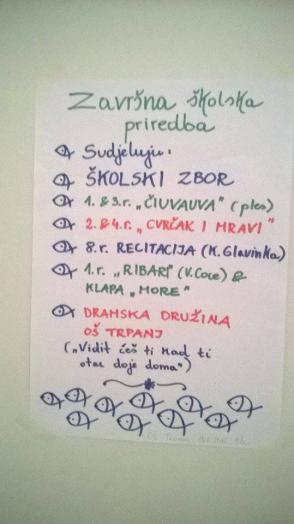 Završna školska
priredba
Sudjeluju:
ŠKOLSKI ZBOR
1. & 3.r. „ČIUVAUVA" (ples)
2. & 4.r. „CVRČAK I MRAVI"
8.r. RECITACIJA (K. Glavinka)
1.r. „RIBARI" (V. Coce) &
KLAPA „MORE"
DRAMSKA DRUŽINA
OŠ TRPANJ
(„Vidit ćeš ti kad ti
otac doje doma")